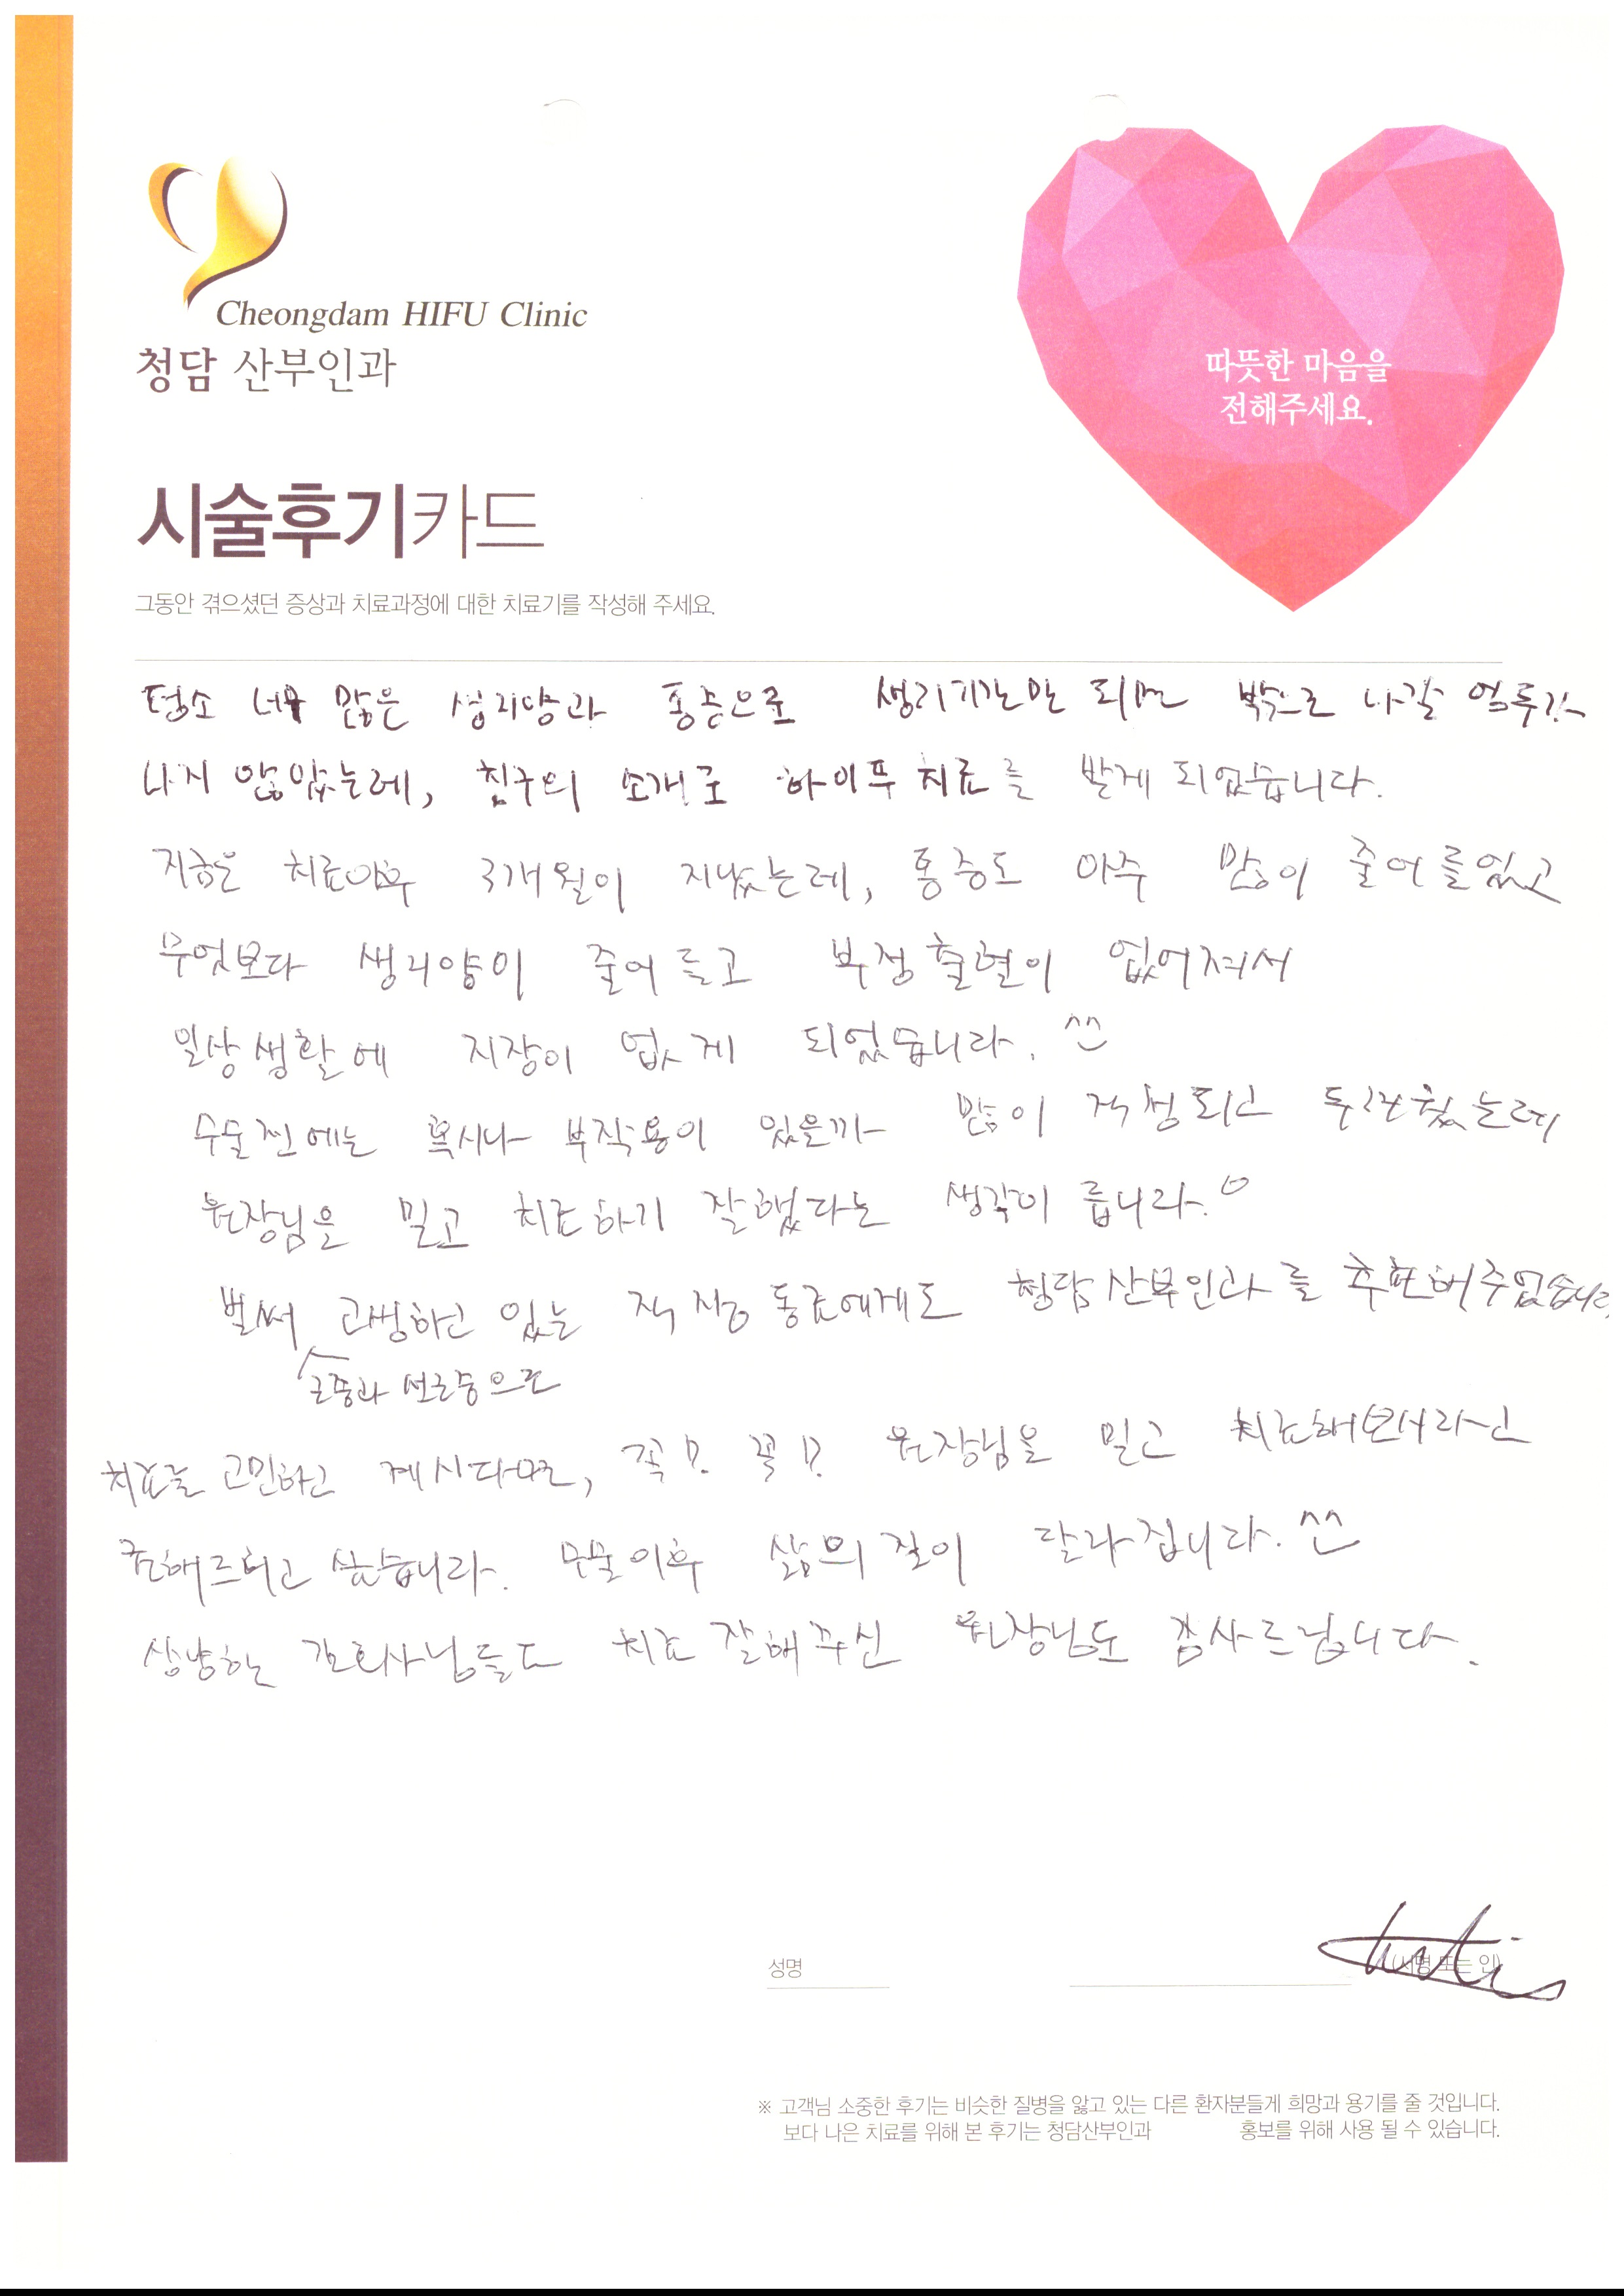 Cheongdam HIFU Clinic
청담 산부인과
따뜻한 마음을
전해주세요.
시술후기카드
그동안 겪으셨던 증상과 치료과정에 대한 치료기를 작성해 주세요.
평소 너무 많은 생리양과 통증으로 생리기간만 되면 밖으로 나갈 엄두가
나지 않았는데, 친구의 소개로 하이푸 치료를 받게 되었습니다.
지금은 치료이후 3개월이 지났는데, 통증도 아주 많이 줄어들었고
무엇보다 생리양이 줄어들고 부정출혈이 없어져서
일상생활에 지장이 없게 되었습니다. ^^
수술전에는 혹시나 부작용이 있을까 많이 걱정되고 두려웠는데
원장님을 믿고 치료하기 잘했다는 생각이 듭니다.
벌써 고생하고 있는 직장동료에게도 청담산부인과를 추천해주었습니다.
근종과 선근증으로
치료를 고민하고 계시다면, 꼭!! 꼭!! 원장님을 믿고 치료해보시라고
권해드리고 싶습니다. 수술이후 삶의 질이 달라집니다. ^^
상냥한 간호사님들도 치료 잘해주신 원장님도 감사드립니다.
성명 (서명 또는 인)
※ 고객님 소중한 후기는 비슷한 질병을 앓고 있는 다른 환자분들게 희망과 용기를 줄 것입니다.
보다 나은 치료를 위해 본 후기는 청담산부인과 홍보를 위해 사용 될 수 있습니다.